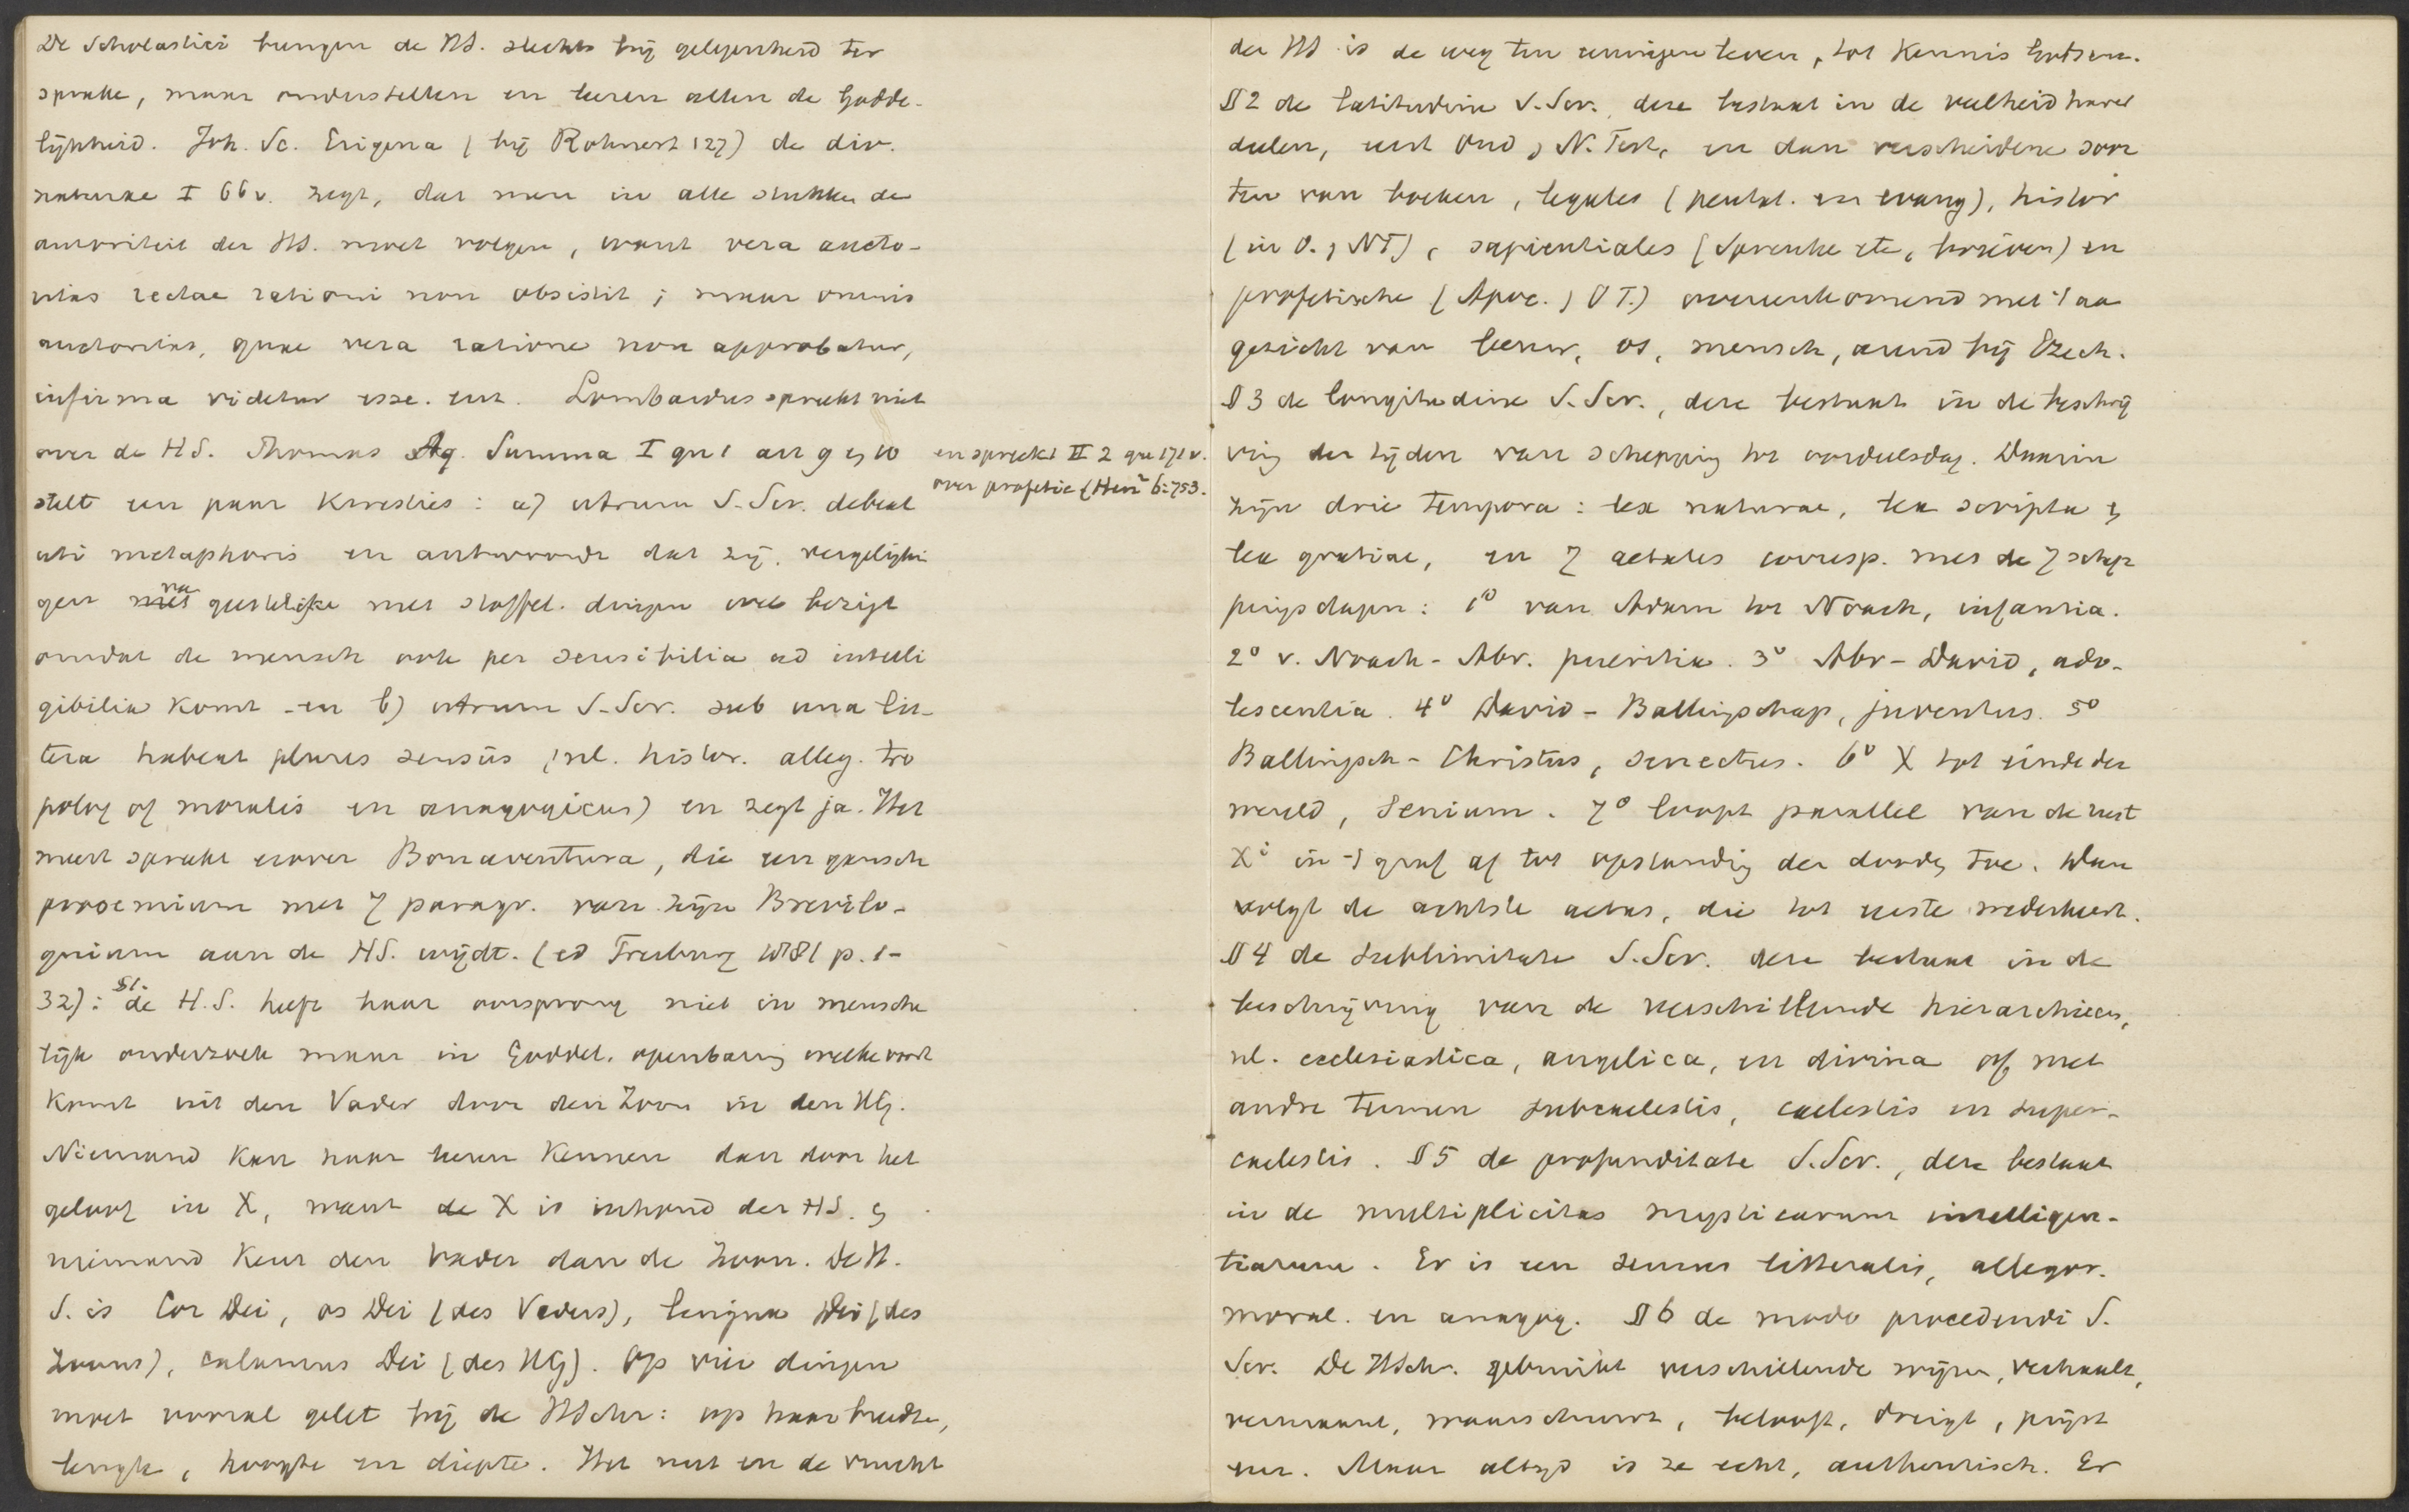 De Scholastici brengen de HS. slechts bij gelegenheid ter
sprake, maar onderstellen en leeren allen de Godde-
lijkheid. Joh. Sc. Erigena (bij Rohnert 127) de div.
naturae I 66v. zegt, dat men in alle stukken de
autoriteit der HS. moet volgen, want vera aucto-
ritas rectae rationi non obsistit; maar omnis
auctoritas, quae vera ratione non approbatur,
infirma videtur esse. enz. Lombardus spreekt niet
over de HS. Thomas Aq. Summa I qu 1 art 9 en 10
en spreekt II 2 qu 171 v.
over profetie (Hen² 6:753.
stelt een paar kwesties: a) utrum S. Scr. debeat
uti metaphoris en antwoordt dat zij vergelijkin
gen van geestelijke met stoffel. dingen bezigt
omdat de mensch ook per sensibilia ad intelli
gibilia komt - en b) utrum S. Scr. sub una lit-
tera habeat plures sensus (nl. histor. alleg. tro
polog of moralis en anagogicus) en zegt ja. Het
meest spreekt erover Bonaventura, die een gansch
prooemium met 7 paragr. van zijn Brevilo-
quium aan de HS. wijdt. (ed Freiburg 1881 p. 1-
32): §1. de H.S. heeft haar oorsprong niet in mensche
lijk onderzoek maar in Goddel. openbaring welke voort
komt uit den Vader door den Zoon in den HG.
Niemand kan haar leeren kennen dan door het
geloof in X, want de X is inhoud der HS. en
niemand kent den Vader dan de Zoon. De H.
S. is Cor Dei, os Dei (des Vaders), lingua Dei (des
Zoons), calamus Dei (des HG). Op vier dingen
moet vooral gelet bij de HSchr: op haar breedte,
lengte, hoogte en diepte. Het nut en de vrucht
der HS is de weg ten eeuwigen leven, tot kennis Gods enz.
§2 de latitudine S. Scr., deze bestaat in de veelheid harer
deelen, eerst Oud en N. Test, en dan verscheidene soor
ten van boeken, legales (pentat. en evang), histor
(in O. en NT), sapientiales (Spreuke etc, brieven) en
profetische (Apoc. en OT.) overeenkomend met 't aan
gezicht van leeuw, os, mensch, arend bij Ezech.
§3 de longitudine S. Scr., deze bestaat in de beschrij
ving der tijden van schepping tot oordeelsdag. Daarin
zijn drie tempora: lex naturae, lex scripta en
lex gratiae, en 7 aetates corresp. met de 7 schep
pingsdagen: 1° van Adam tot Noach, infantia.
2° v. Noach - Abr. pueritia. 3° Abr - David, ado-
lescentia. 4° David - Ballingschap, juventus. 5°
Ballingsch - Christus, senectus. 6° X tot einde der
wereld, senium. 7° loopt parallel van de rust
Xi in 't graf af tot opstanding der dooden toe. Dan
volgt de achtste aetas, die tot eerste wederkeert.
§4 de sublimitate S. Scr. deze bestaat in de
beschrijving van de verschillende hierarchieen,
nl. ecclesiastica, angelica, en divina of met
andre termen subcaelestis, caelestis en super-
caelestis. §5 de profunditate S. Scr., deze bestaat
in de multiplicitas mysticarum intelligen-
tiarum. Er is een sensus litteralis, allegor.
moral. en anagog. §6 de modo procedendi S.
Scr. De HSchr. gebruikt verschillende wijzen, verhaalt,
vermaant, waarschuwt, belooft, dreigt, prijst
enz. Maar altijd is ze echt, authentisch. Er